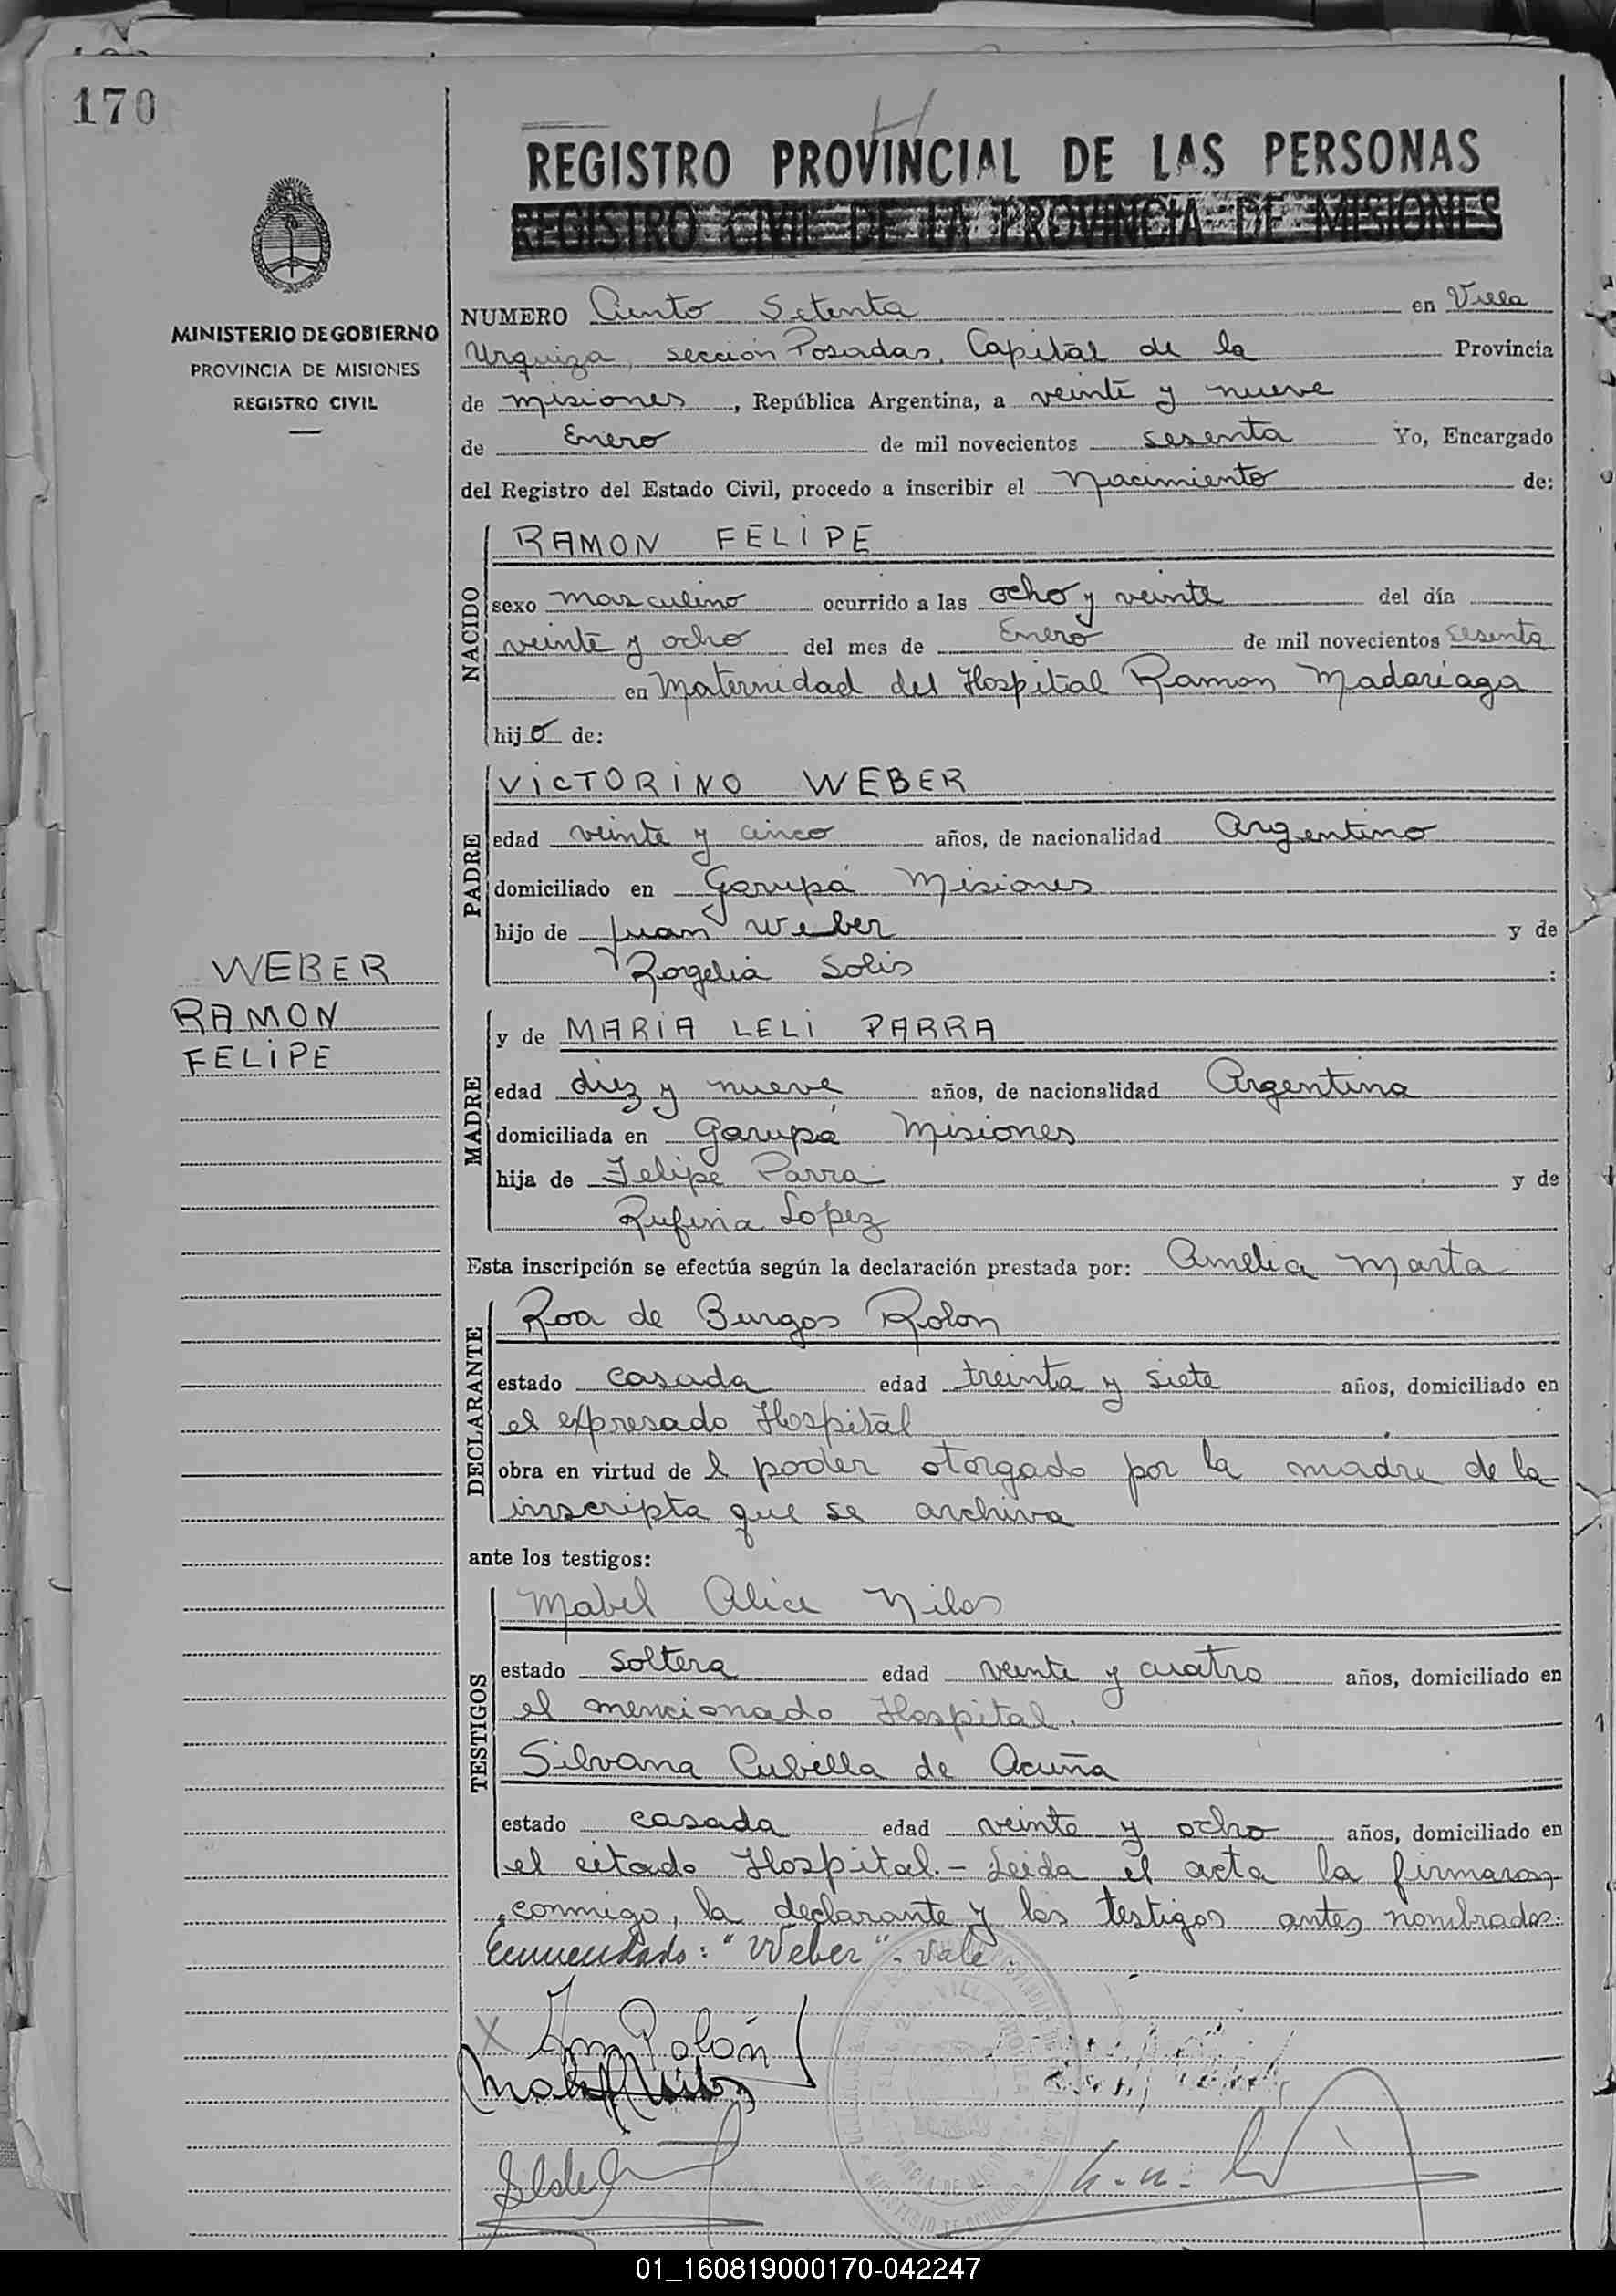 170
REGISTRO PROVINCIAL DE LAS PERSONAS
REGISTRO CIVIL DE LA PROVINCIA DE MISIONES
MINISTERIO DE GOBIERNO
PROVINCIA DE MISIONES
REGISTRO CIVIL
NUMERO Ciento Setenta en Villa
Urquiza, sección Posadas, Capital de la Provincia
de Misiones, República Argentina, a veinte y nueve
de Enero de mil novecientos sesenta Yo, Encargado
del Registro del Estado Civil, procedo a inscribir el Nacimiento de:
NACIDO
RAMON FELIPE
sexo masculino ocurrido a las ocho y veinte del día
veinte y ocho del mes de Enero de mil novecientos sesenta
en Maternidad del Hospital Ramon Madariaga
hijo de:
PADRE
VICTORINO WEBER
edad veinte y cinco años, de nacionalidad Argentino
domiciliado en Garupá Misiones
hijo de Juan Weber y de
Rogelia Solis :
WEBER
RAMON
FELIPE
MADRE
y de MARIA LELI PARRA
edad diez y nueve años, de nacionalidad Argentina
domiciliada en Garupá Misiones
hija de Felipe Parra y de
Rufina Lopez
Esta inscripción se efectúa según la declaración prestada por: Amelia Marta
DECLARANTE
Roa de Burgos Rolon
estado casada edad treinta y siete años, domiciliado en
el expresado Hospital
obra en virtud de l poder otorgado por la madre de la
inscripta que se archiva
ante los testigos:
TESTIGOS
Mabel Alice Nilos
estado soltera edad veinte y cuatro años, domiciliado en
el mencionado Hospital.
Silvana Cubilla de Acuña
estado casada edad veinte y ocho años, domiciliado en
el citado Hospital.- Leida el acta la firmaron
conmigo, la declarante y los testigos antes nombrados.
Enmendado: "Weber". Vale
Rolón
01_160819000170-042247